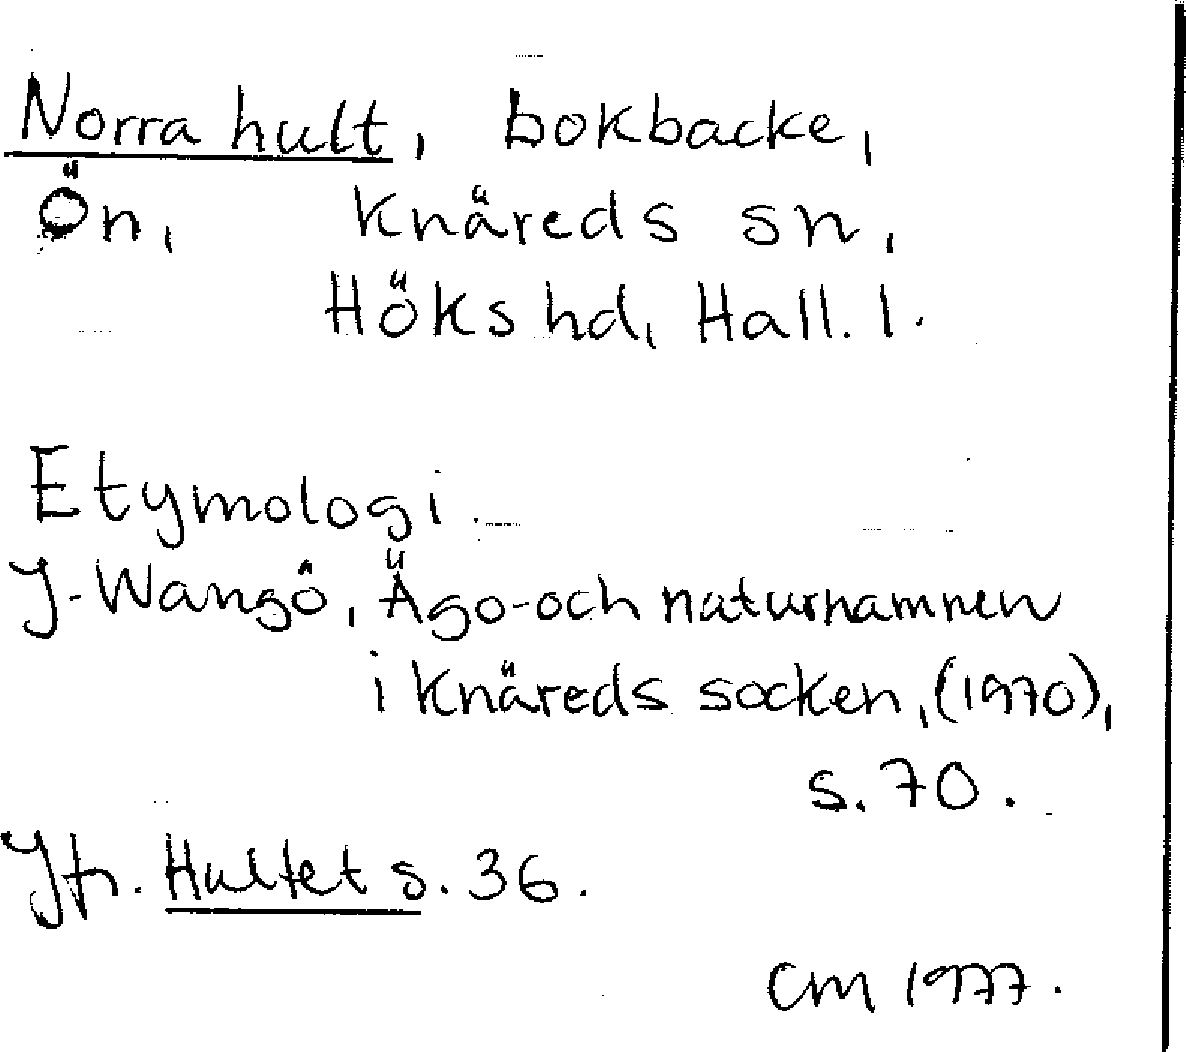 Norra hult, bokbacke,
Ön, Knäreds sn,
Höks hd, Hall. l.
Etymologi.
J. Wangö, Ägo- och naturnamnen
i Knäreds socken, (1970),
s. 70.
Jfr. Hultet s. 36.
CM 1977.